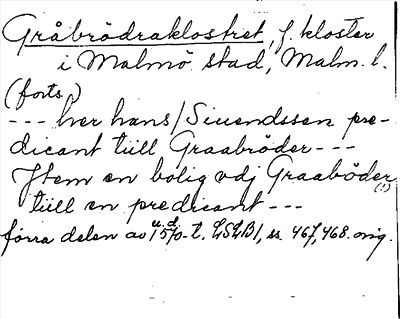 Gråbrödraklostret, f. kloster
i Malmö stad, Malm. l.
(forts.)
--- her hans/Siuendssen pre-
dicant tiill Graabröder---
Jtem en bolig vdj Graaböder(!)
tiill en predicant---
förra delen av u.d. 1570-t. LSLB1, ss. 467, 468. orig.